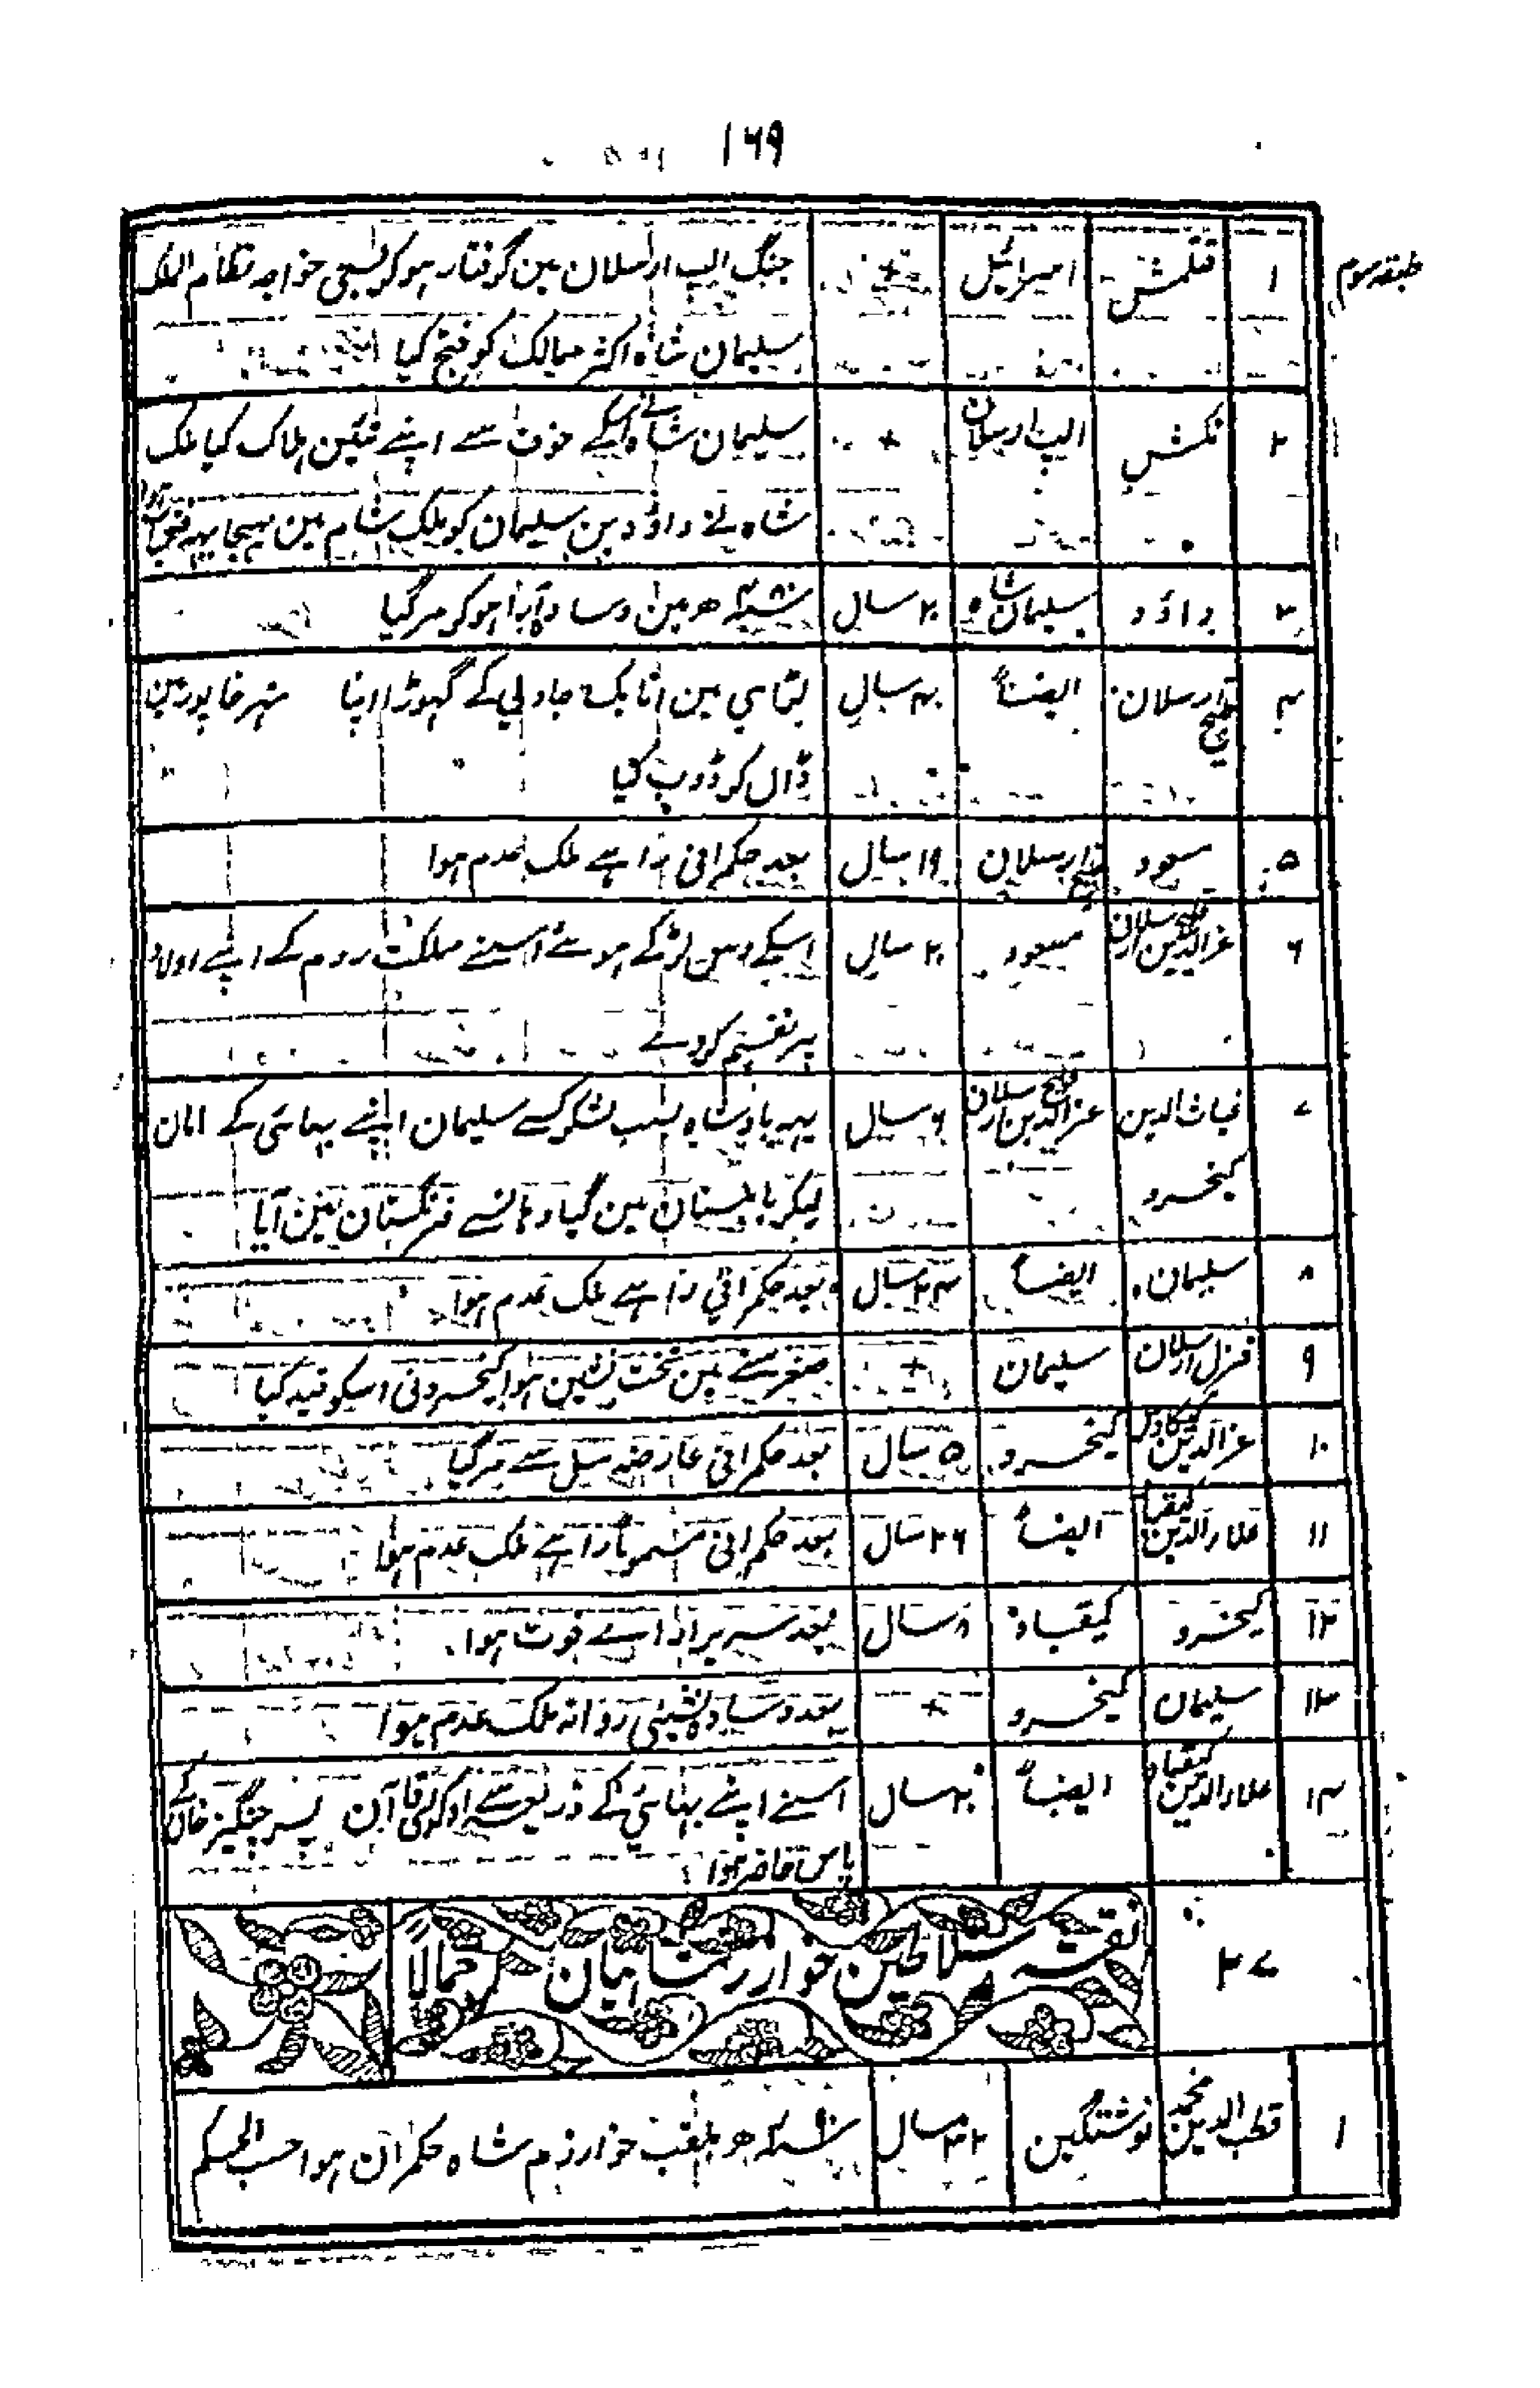 ۱۶۹
طبقہ سوم
۱ قتلمش اسرائیل + جنگ الپ ارسلان مین گرفتار ہوکر بسعی خواجہ نظام الملک
سلیمان شاہ اکثر ممالک کو فتح کیا
۲ تکش الپ ارسلان + سلیمان شاہ نے اسکے خوف سے اپنے تئین ہلاک کیا ملک
شاہ نے داؤد بن سلیمان کو ملک شام مین بھیجا یہہ
۳ داؤد سلیمان شاہ ۲۰ سال سنہ ۴۸۰ ھ مین وسادہ آرا ہوکر مرگیا
۴ قلیج ارسلان ایضاً ۴۰ سال مین اتابک جاولی کے گھوڑا اپنا نہر خاپور مین
ڈال کر ڈوب گیا
۵ مسعود قلیج ارسلان ۱۹ سال بعد حکمرانی راہے ملک عدم ہوا
۶ عزالدین قلیج ارسلان مسعود ۲۰ سال اسکے دس لڑکے ہوئے اسنے مملکت روم کے اپنے اولاد
پر تقسیم کردے
۷ غیاث الدین عزالدین قلیج ارسلان ۶ سال یہہ بادشاہ بسبب لشکر کسے سلیمان اپنے بھائی کے امان
کیخسرو لیکر مین گیا وہانسے فرنگستان مین آیا
۸ سلیمان ایضاً ۲۴ سال بعد حکمرانی راہے ملک عدم ہوا
۹ قزل ارسلان سلیمان + صغر سنے مین تخت نشین ہوا کیخسرو نی اسکو قید کیا
۱۰ عزالدین کیکاوس کیخسرو ۵ سال بعد حکمرانی عارضہ سل سے مرگیا
۱۱ علاءالدین کیقباد ایضاً ۲۶ سال بعد حکمرانی راہے ملک عدم ہوا
۱۲ کیخسرو کیقباد ۸ سال بعد سریر ارائے فوت ہوا
۱۳ سلیمان کیخسرو + بعد وسادہ نشینی روانہ ملک عدم ہوا
۱۴ علاءالدین کیقباد ایضاً ۲۰ سال اسنے اپنے بھائی کے ذریعہ سے قاآن پسر چنگیز خان کے
پاس حاضر ہوا
۲۷ نقشہ سلاطین خوارزمشاہیان اجمالاً
۱ قطب الدین محمد نوشتگین سال سنہ ۴۹۰ ھ ملقب خوارزم شاہ حکمران ہوا حسب الحکم